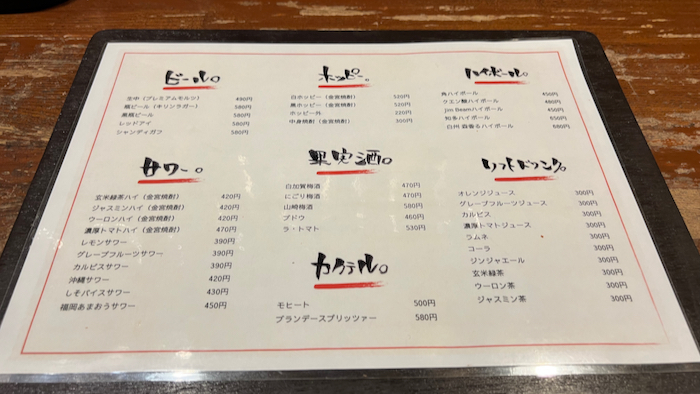 ビール。
生中（プレミアムモルツ） 490円
瓶ビール（キリンラガー） 580円
黒瓶ビール 580円
レッドアイ 580円
シャンディガフ 580円
ホッピー。
白ホッピー（金宮焼酎） 520円
黒ホッピー（金宮焼酎） 520円
ホッピー外 220円
中身焼酎（金宮焼酎） 300円
ハイボール。
角ハイボール 450円
クエン酸ハイボール 480円
Jim Beamハイボール 450円
知多ハイボール 650円
白州 森香るハイボール 680円
サワー。
玄米緑茶ハイ（金宮焼酎） 420円
ジャスミンハイ（金宮焼酎） 420円
ウーロンハイ（金宮焼酎） 420円
濃厚トマトハイ（金宮焼酎） 470円
レモンサワー 390円
グレープフルーツサワー 390円
カルピスサワー 390円
沖縄サワー 420円
しそパイスサワー 430円
福岡あまおうサワー 450円
果実酒。
白加賀梅酒 470円
にごり梅酒 470円
山崎梅酒 580円
ブドウ 460円
ラ・トマト 530円
カクテル。
モヒート 500円
ブランデースプリッツァー 580円
ソフトドリンク。
オレンジジュース 300円
グレープフルーツジュース 300円
カルピス 300円
濃厚トマトジュース 300円
ラムネ 300円
コーラ 300円
ジンジャエール 300円
玄米緑茶 300円
ウーロン茶 300円
ジャスミン茶 300円